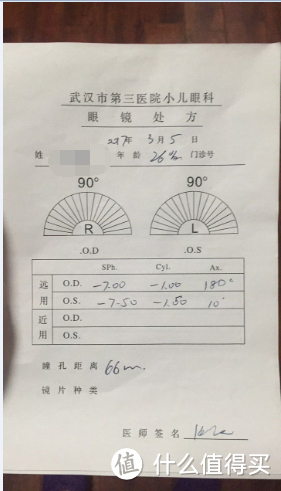 武汉市第三医院小儿眼科
眼镜处方
2017年 3月 5日
姓 年龄 26 门诊号
90° 90°
R L
.O.D .O.S
SPh. Cyl. Ax.
远用 O.D. -7.00 -1.00 180°
O.S. -7.50 -1.50 10°
近用 O.D.
O.S.
瞳孔距离 66m.
镜片种类
医师签名
值 什么值得买